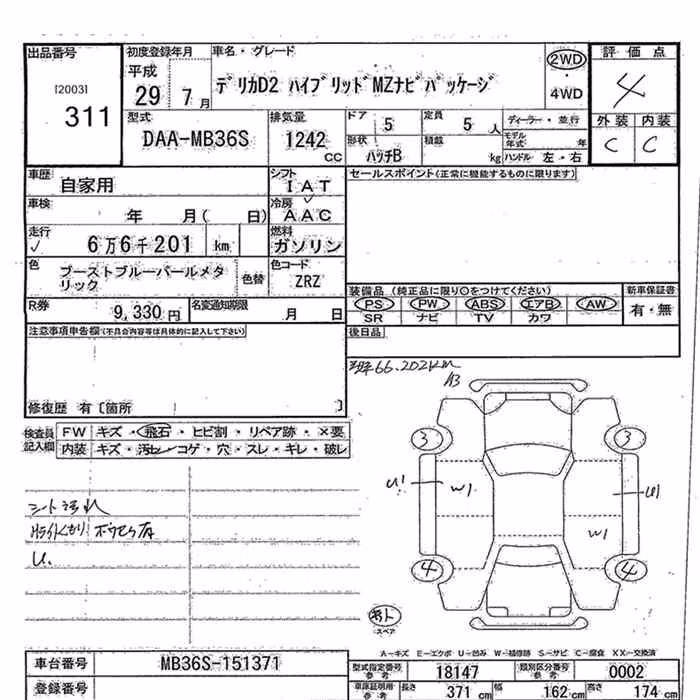 出品番号 初度登録年月 車名・グレード 評価点
[2003] 平成 デリカD2 ハイブリッドMZナビパッケージ 2WD 4
311 29 7月 4WD
型式 排気量 ドア 5 定員 5人 ディーラー・並行 外装 内装
DAA-MB36S 1242 CC 形状 ハッチB 積載 kg モデル年式 年 C C
ハンドル 左・右
車歴 自家用 シフト IAT セールスポイント(正常に機能するものに限ります)
車検 年 月( 日) 冷房 AAC
走行 6万6千201 km 燃料 ガソリン
色 ブーストブルーパールメタリック 色替 色コード ZRZ
装備品 (純正品に限り○をつけてください) 新車保証書
R券 9,330円 名変通知期限 月 日 PS PW ABS エアB AW 有・無
SR ナビ TV カワ
注意事項申告欄(不具合内容等は具体的に記入して下さい) 後日品
66.202km
A3
修復歴 有〔箇所 〕
検査員記入欄 FW キズ・飛石・ヒビ割・リペア跡・×要
内装 キズ・汚レ・コゲ・穴・スレ・キレ・破レ
3 3
U1 W1 U1
シート汚れ
W1
U.
4 4
スペア
A-キズ E-エクボ U-凹み W-補修跡 S-サビ C-腐食 XX-交換済
車台番号 MB36S-151371 型式指定番号参考 18147 類別区分番号参考 0002
登録番号 車庫証明用参考 長さ 371cm 幅 162cm 高さ 174cm